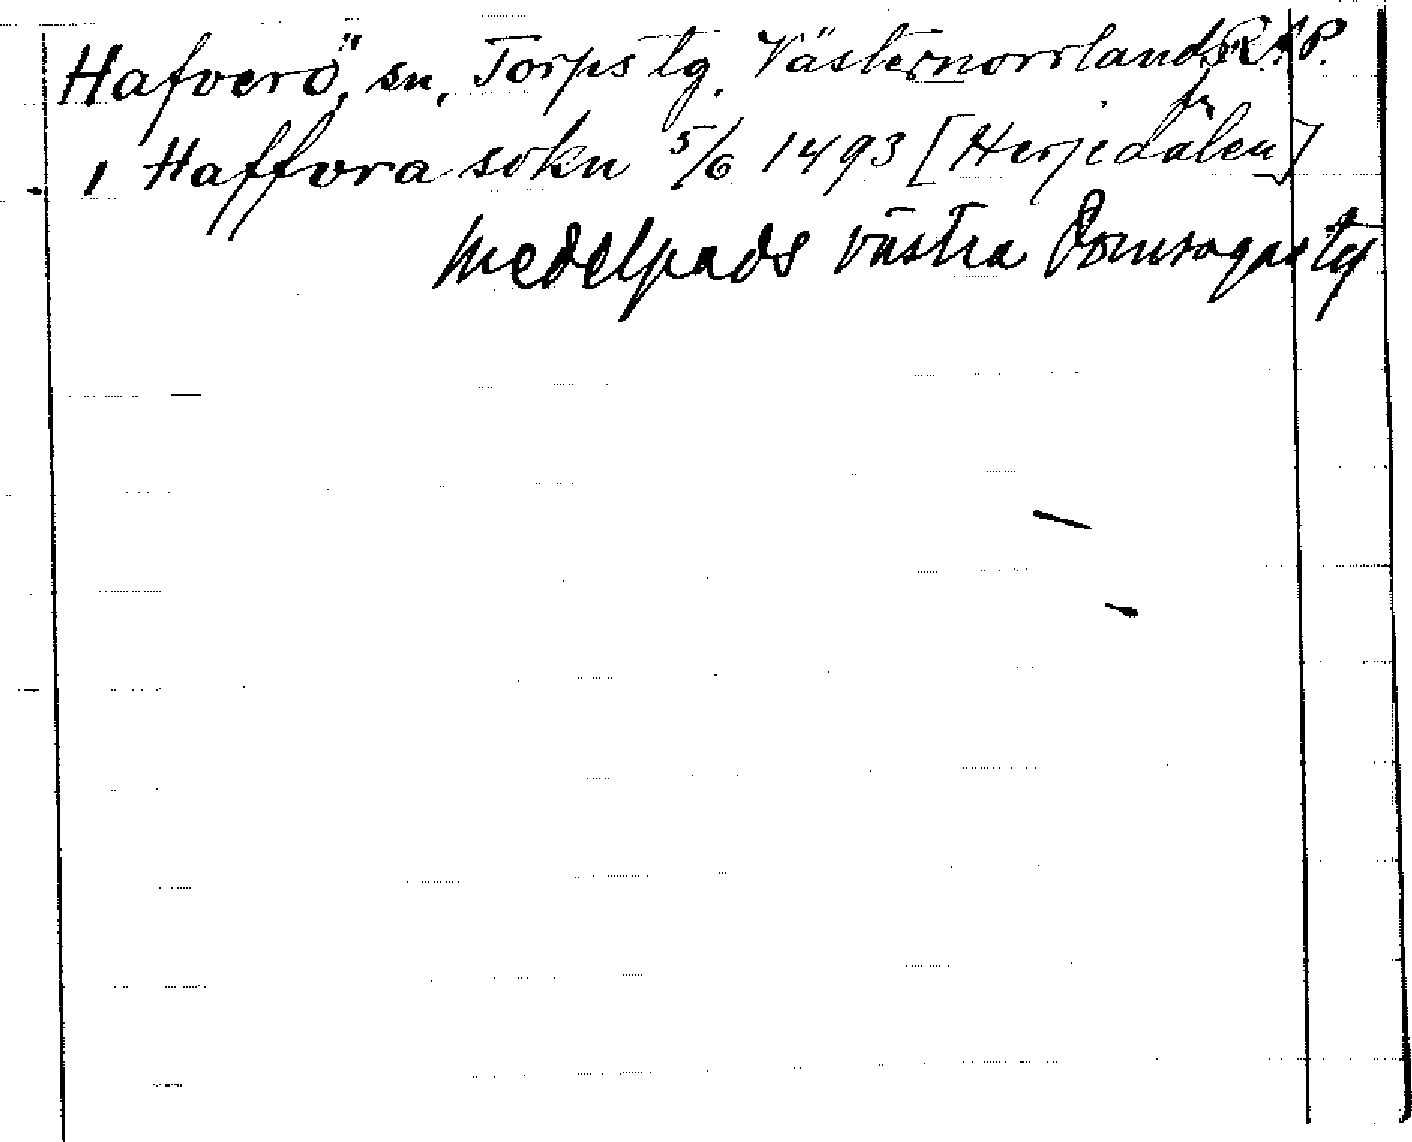 Hafverö, sn, Torps tg. Västernorrlands R.A.P.
ln
1 Haffvra sokn 5/6 1493 [Herjedalen]
Medelpads västra Domsagas tg